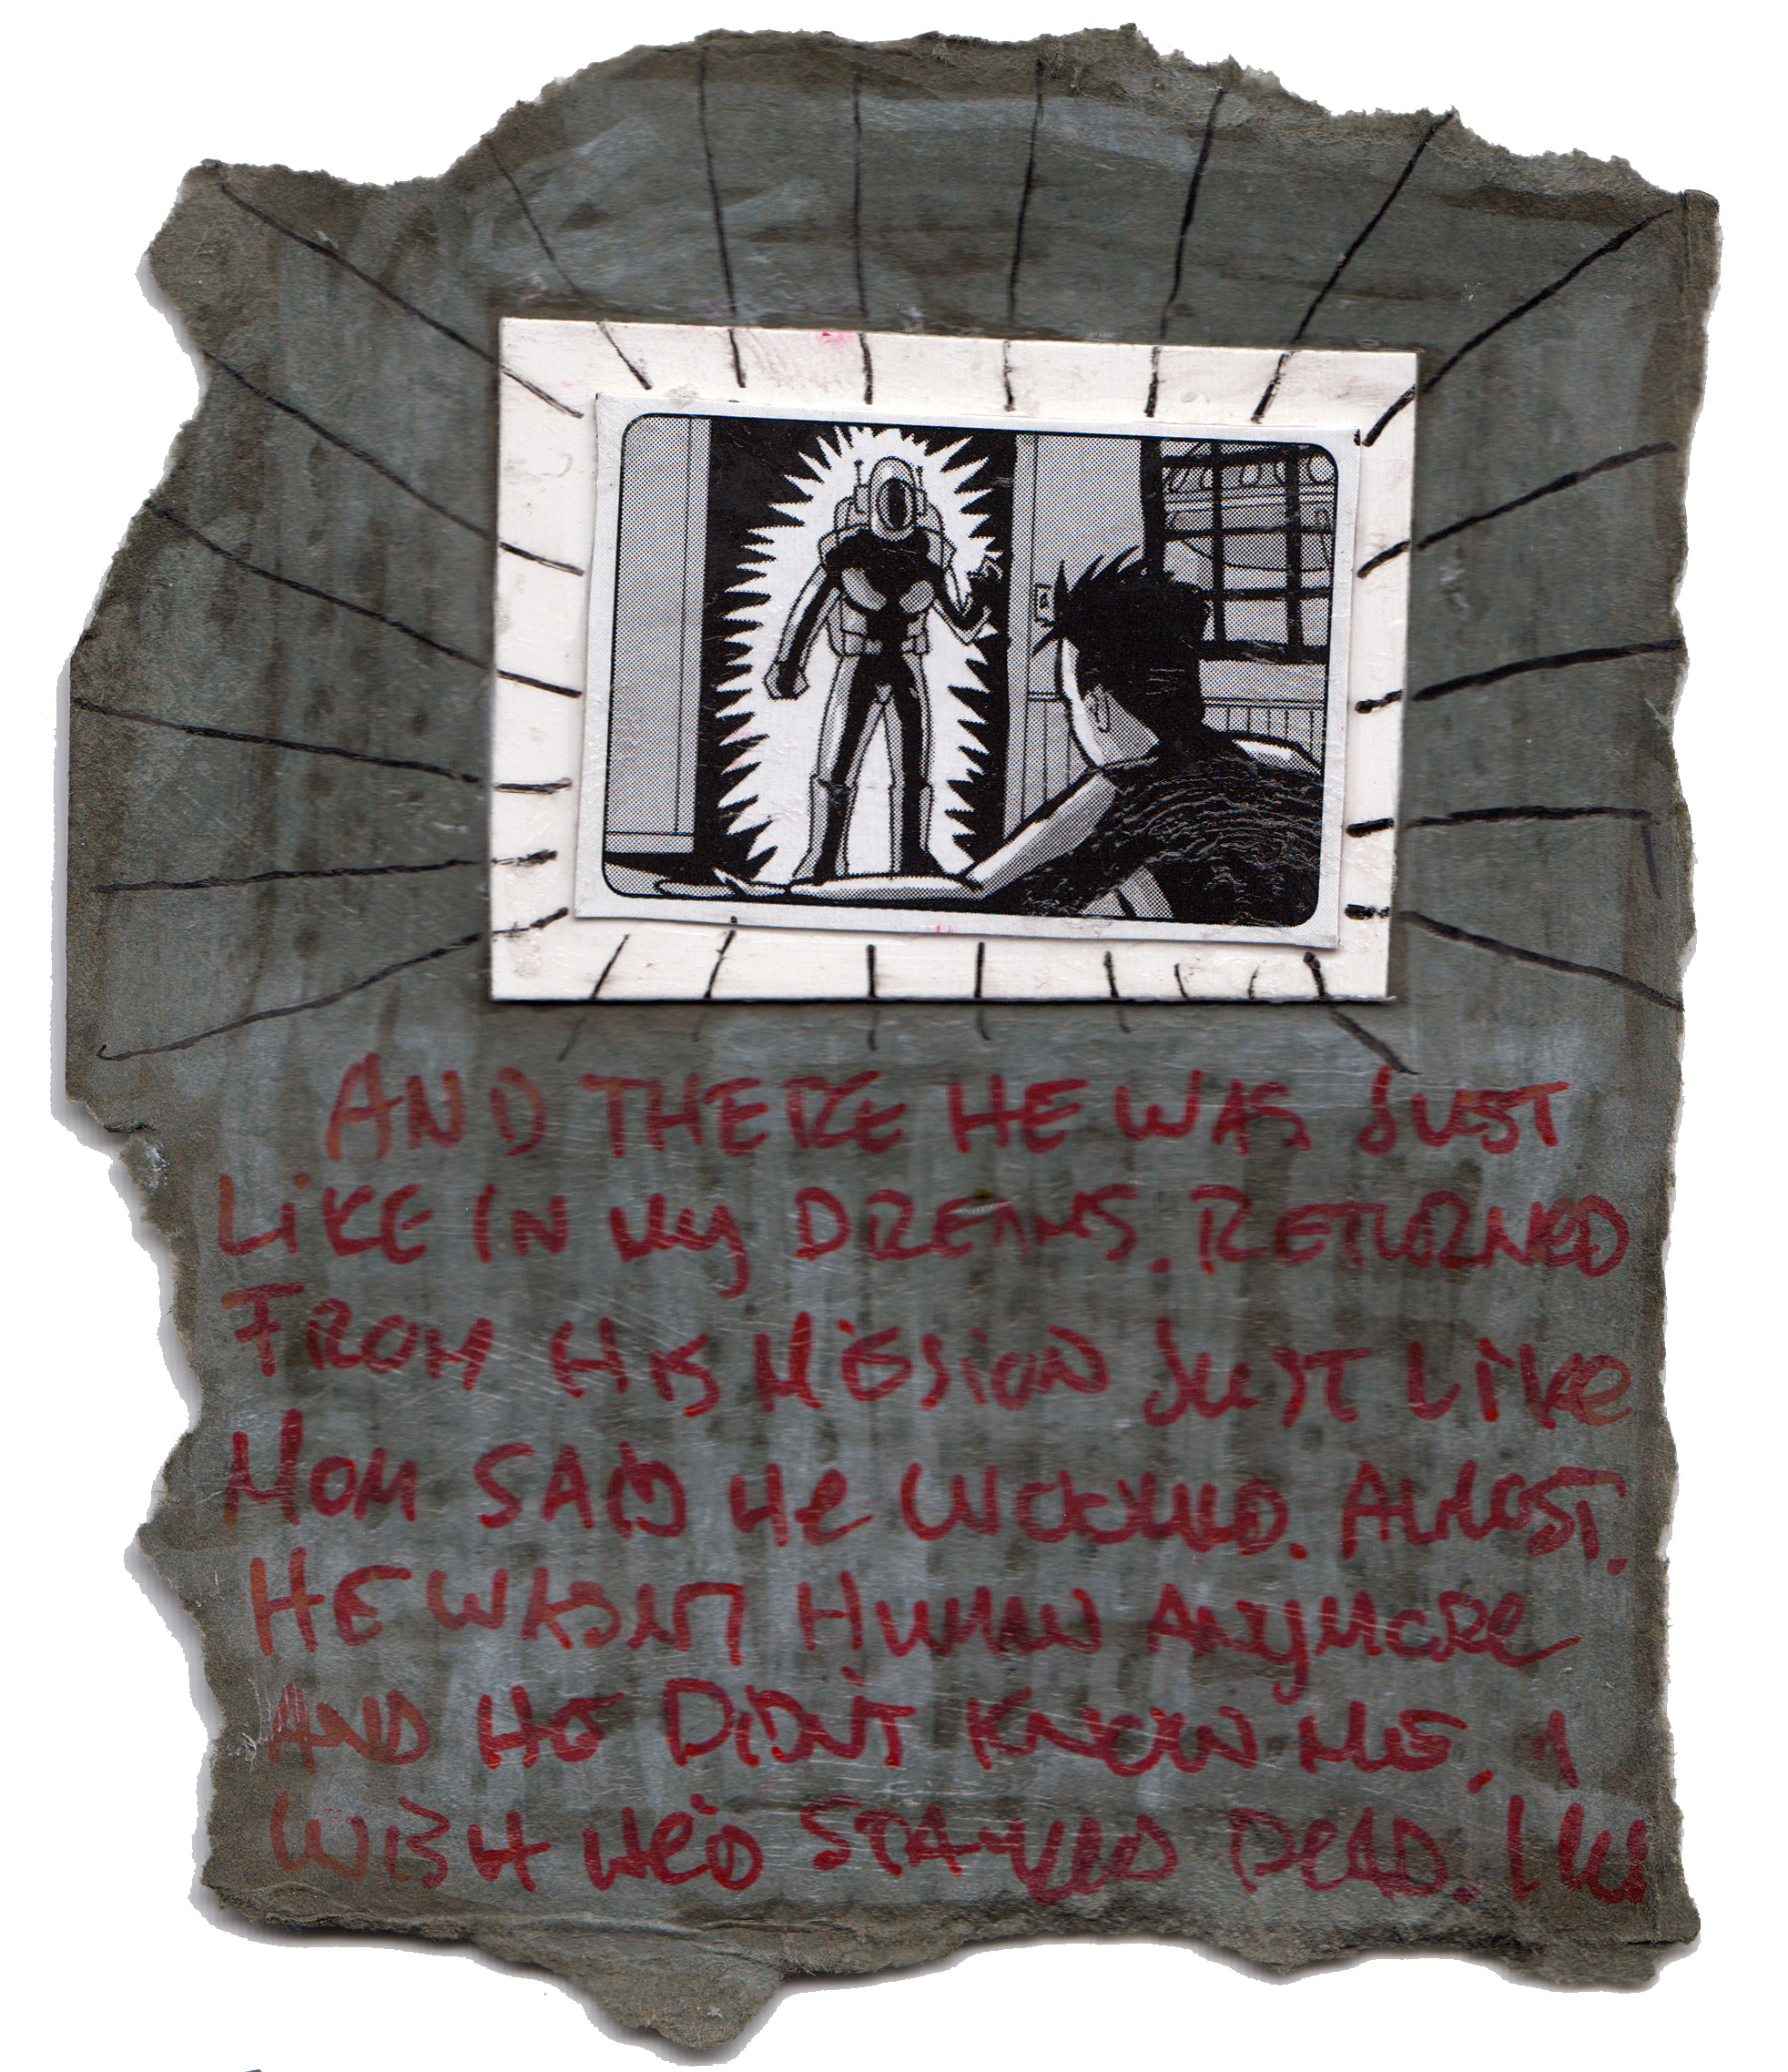 AND THERE HE WAS JUST
LIKE IN MY DREAMS. RETURNED
FROM HIS MISSION JUST LIKE
MOM SAID HE WOULD. ALMOST.
HE WASN'T HUMAN ANYMORE
AND HE DIDN'T KNOW ME. I
WISH HE'D STAYED DEAD. I